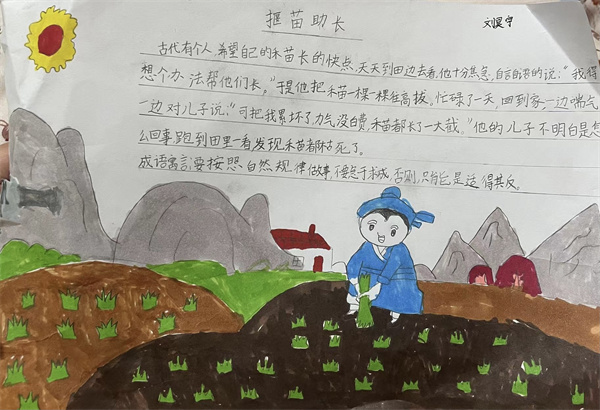 揠苗助长
刘昊宁
古代有个人,希望自己的禾苗长的快点,天天到田边去看,他十分焦急,自言自语的说:“我得
想个办法帮他们长。”于是他把禾苗一棵一棵往高拔。忙碌了一天,回到家,一边喘气
一边对儿子说:“可把我累坏了,力气没白费,禾苗都长了一大截。”他的儿子不明白是怎
么回事,跑到田里一看发现禾苗都枯死了。
成语寓言:要按照自然规律做事,不要急于求成,否则,只能是适得其反。